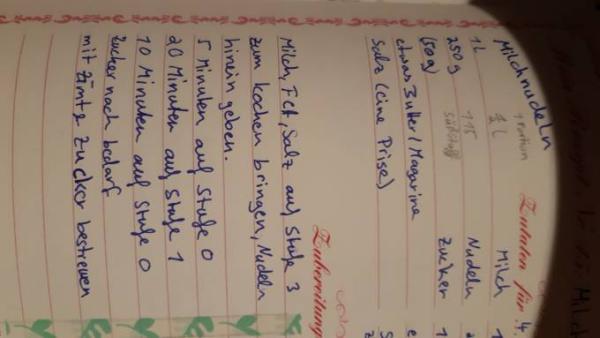 Milchnudeln Zutaten für 4.
1 Portion
1 L Milch
250 g 115 Nudeln
(50g) süßstoff Zucker
etwas Butter / Magarine
Salz (eine Prise)
Zubereitung
Milch, Fett, Salz auf Stufe 3
zum kochen bringen, Nudeln
hinein geben.
5 Minuten auf Stufe 0
20 Minuten auf Stufe 1
10 Minuten auf Stufe 0
Zucker nach bedarf
mit Zucker bestreuen